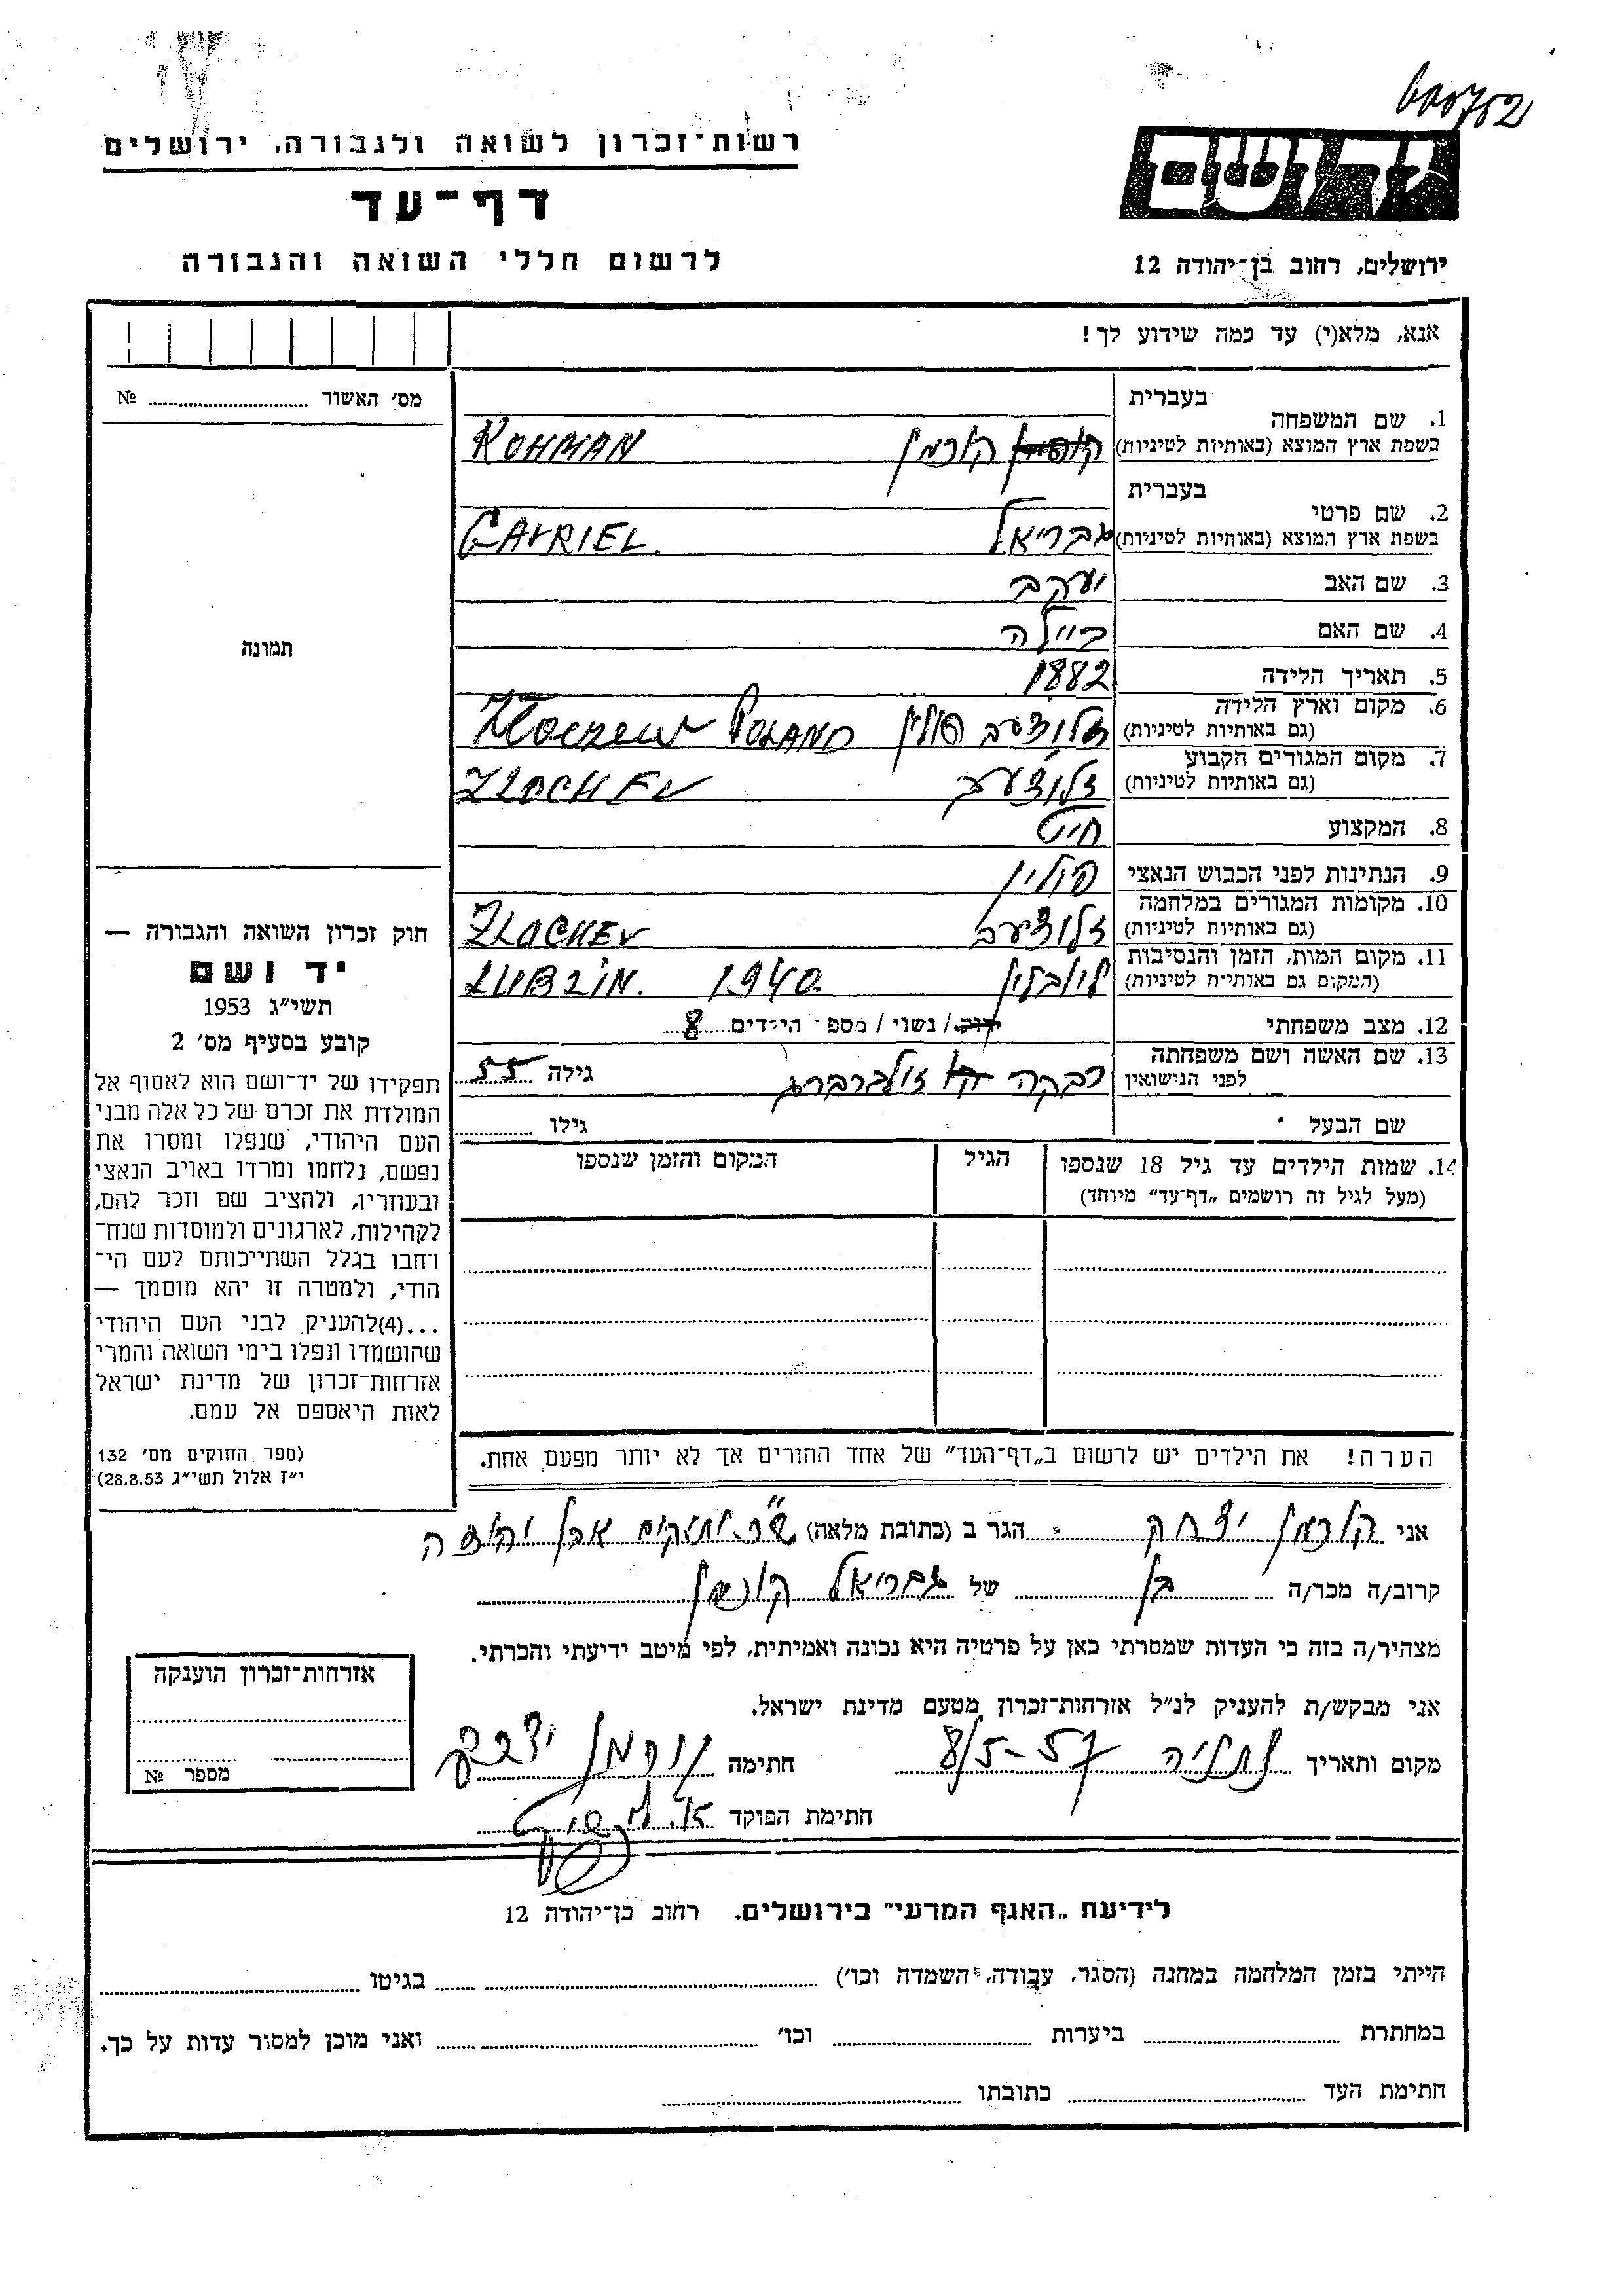 600752
רשות־זכרון לשואה ולגבורה, ירושלים
דף־עד
לרשום חללי השואה והגבורה
יד ושם
ירושלים, רחוב בן־יהודה 12
אנא, מלא(י) עד כמה שידוע לך!
מס׳ האשור № ....................
תמונה
1. שם המשפחה בעברית
בשפת ארץ המוצא (באותיות לטיניות) קוכמן KOHMAN
2. שם פרטי בעברית
בשפת ארץ המוצא (באותיות לטיניות) גבריאל GAVRIEL.
3. שם האב יעקב
4. שם האם ביילה
5. תאריך הלידה 1882
6. מקום וארץ הלידה
(גם באותיות לטיניות) זלוצ'עב פולין Zloczew POLAND
7. מקום המגורים הקבוע
(גם באותיות לטיניות) זלוצ'עב ZLOCHEV
8. המקצוע חייט
9. הנתינות לפני הכבוש הנאצי פולין
10. מקומות המגורים במלחמה
(גם באותיות לטיניות) זלוציעב ZLOCHEV
11. מקום המות, הזמן והנסיבות
(המקום גם באותיות לטיניות) לובלין LUBLIN. 1940
12. מצב משפחתי רווק / נשוי / מספ־ הילדים 8
13. שם האשה ושם משפחתה
לפני הנישואין רבקה זילברברג גילה 55
שם הבעל גילו
14. שמות הילדים עד גיל 18 שנספו הגיל המקום והזמן שנספו
(מעל לגיל זה רושמים „דף־עד״ מיוחד)
חוק זכרון השואה והגבורה —
יד ושם
תשי״ג 1953
קובע בסעיף מס׳ 2
תפקידו של יד־ושם הוא לאסוף אל
המולדת את זכרם של כל אלה מבני
העם היהודי, שנפלו ומסרו את
נפשם, נלחמו ומרדו באויב הנאצי
ובעוזריו, ולהציב שם וזכר להם,
לקהילות, לארגונים ולמוסדות שנח־
רחבו בגלל השתייכותם לעם הי־
הודי, ולמטרה זו יהא מוסמך —
...(4)להעניק לבני העם היהודי
שהושמדו ונפלו בימי השואה והמרי
אזרחות־זכרון של מדינת ישראל
לאות היאספם אל עמם.
(ספר החוקים מס׳ 132
י״ז אלול תשי״ג 28.8.53)
הערה! את הילדים יש לרשום ב„דף־העד״ של אחד ההורים אך לא יותר מפעם אחת.
אני קוכמן יצחק הגר ב (כתובת מלאה) ותיקים אבן יהודה
קרוב/ה מכר/ה בן של גבריאל קוכמן
מצהיר/ה בזה כי העדות שמסרתי כאן על פרטיה היא נכונה ואמיתית, לפי מיטב ידיעתי והכרתי.
אני מבקש/ת להעניק לנ״ל אזרחות־זכרון מטעם מדינת ישראל.
מקום ותאריך נתניה 8/5-57 חתימה קוכמן יצחק
חתימת הפוקד
אזרחות־זכרון הוענקה
מספר №
לידיעת „האגף המדעי״ בירושלים. רחוב בן־יהודה 12
הייתי בזמן המלחמה במחנה (הסגר, עבודה, השמדה וכו׳) בגיטו
במחתרת ביערות וכו׳ ואני מוכן למסור עדות על כך.
חתימת העד כתובתו